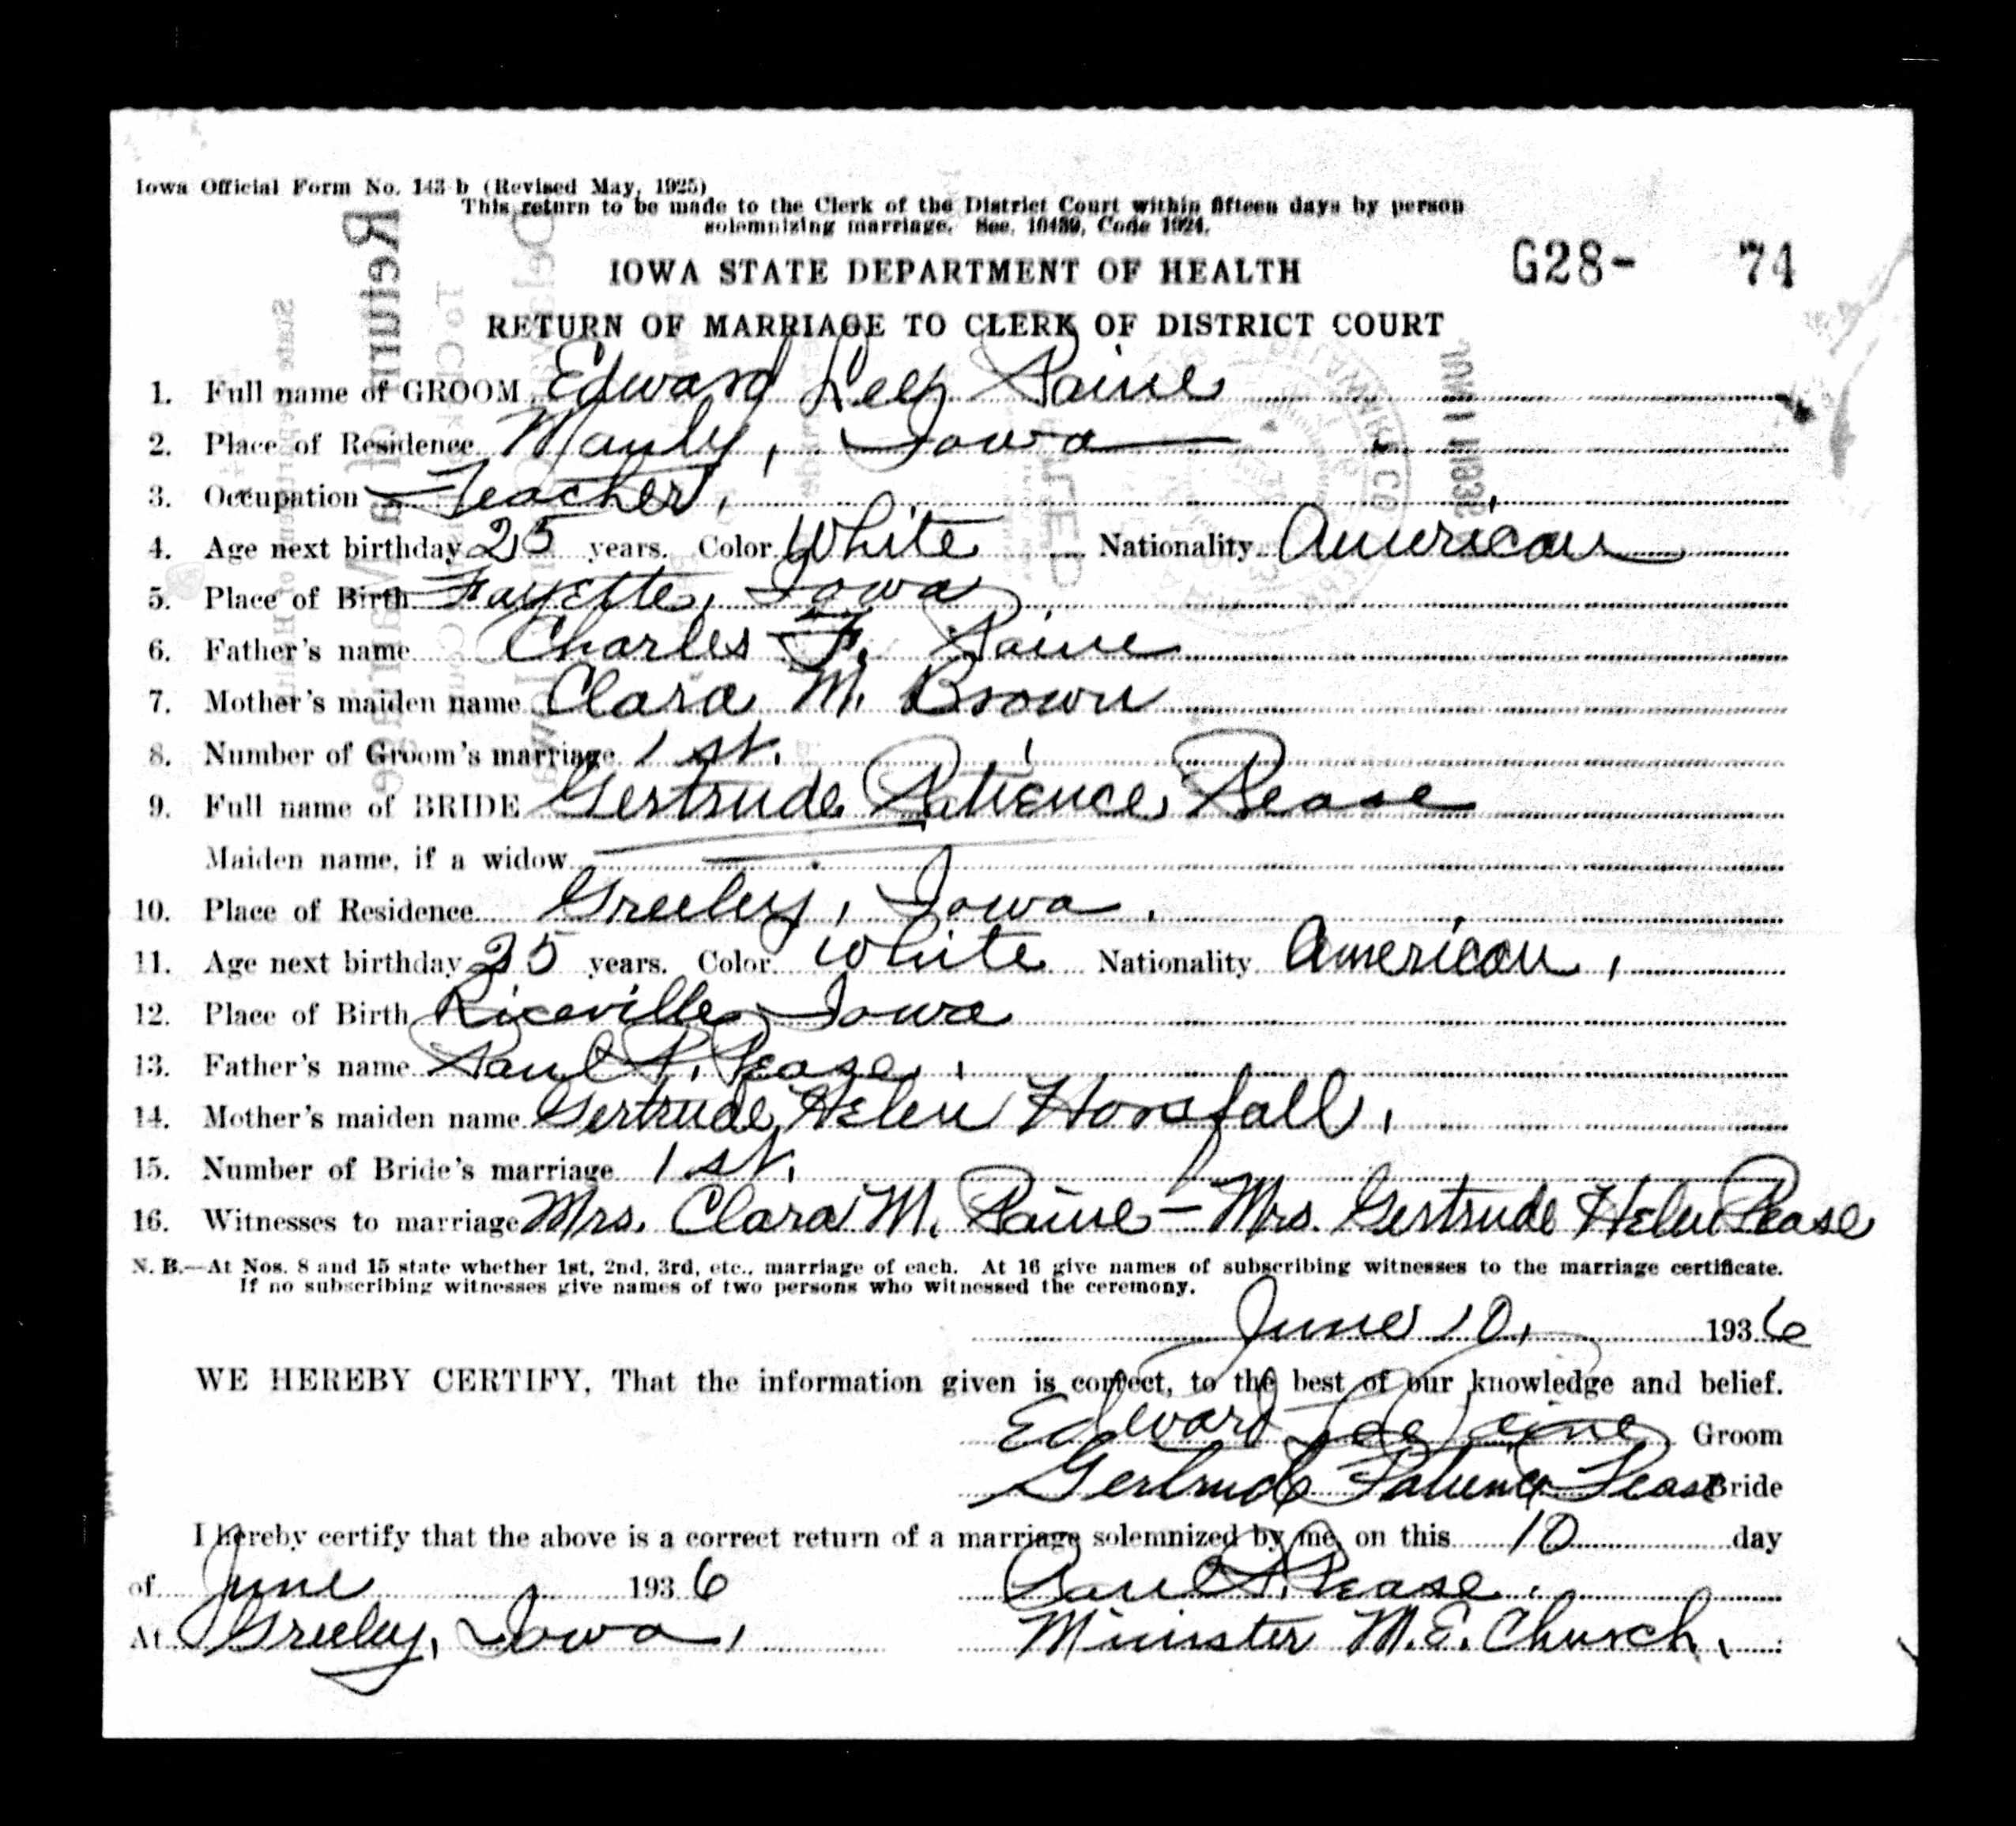 Iowa Official Form No. 143-b (Revised May, 1925)
This return to be made to the Clerk of the District Court within fifteen days by person
solemnizing marriage. Sec. 10439, Code 1924.
IOWA STATE DEPARTMENT OF HEALTH G28- 74
RETURN OF MARRIAGE TO CLERK OF DISTRICT COURT
1. Full name of GROOM Edward Lee Paine
2. Place of Residence Manly, Iowa
3. Occupation Teacher.
4. Age next birthday 25 years. Color White Nationality American
5. Place of Birth Fayette, Iowa
6. Father's name Charles F. Paine
7. Mother's maiden name Clara M. Brown
8. Number of Groom's marriage 1st.
9. Full name of BRIDE Gertrude Patience Pease
Maiden name, if a widow
10. Place of Residence Greeley, Iowa.
11. Age next birthday 25 years. Color White Nationality American.
12. Place of Birth Riceville, Iowa
13. Father's name Paul P. Pease.
14. Mother's maiden name Gertrude Helen Horsfall.
15. Number of Bride's marriage 1st.
16. Witnesses to marriage Mrs. Clara M. Paine - Mrs. Gertrude Helen Pease
N. B.—At Nos. 8 and 15 state whether 1st, 2nd, 3rd, etc., marriage of each. At 16 give names of subscribing witnesses to the marriage certificate.
If no subscribing witnesses give names of two persons who witnessed the ceremony.
June 10, 1936
WE HEREBY CERTIFY, That the information given is correct, to the best of our knowledge and belief.
Edward Lee Paine Groom
Gertrude Patience Pease Bride
I hereby certify that the above is a correct return of a marriage solemnized by me, on this 10 day
of June 1936 Paul P. Pease.
At Greeley, Iowa, Minister M.E. Church.